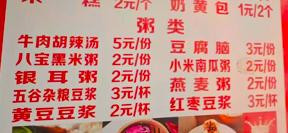 糕 2元/个 奶黄包 1元/2个
粥类
牛肉胡辣汤 5元/份 豆腐脑 3元/份
八宝黑米粥 2元/份 小米南瓜粥 2元/份
银耳粥 2元/份 燕麦粥 2元/份
五谷杂粮豆浆 3元/杯 红枣豆浆 3元/杯
黄豆豆浆 2元/杯